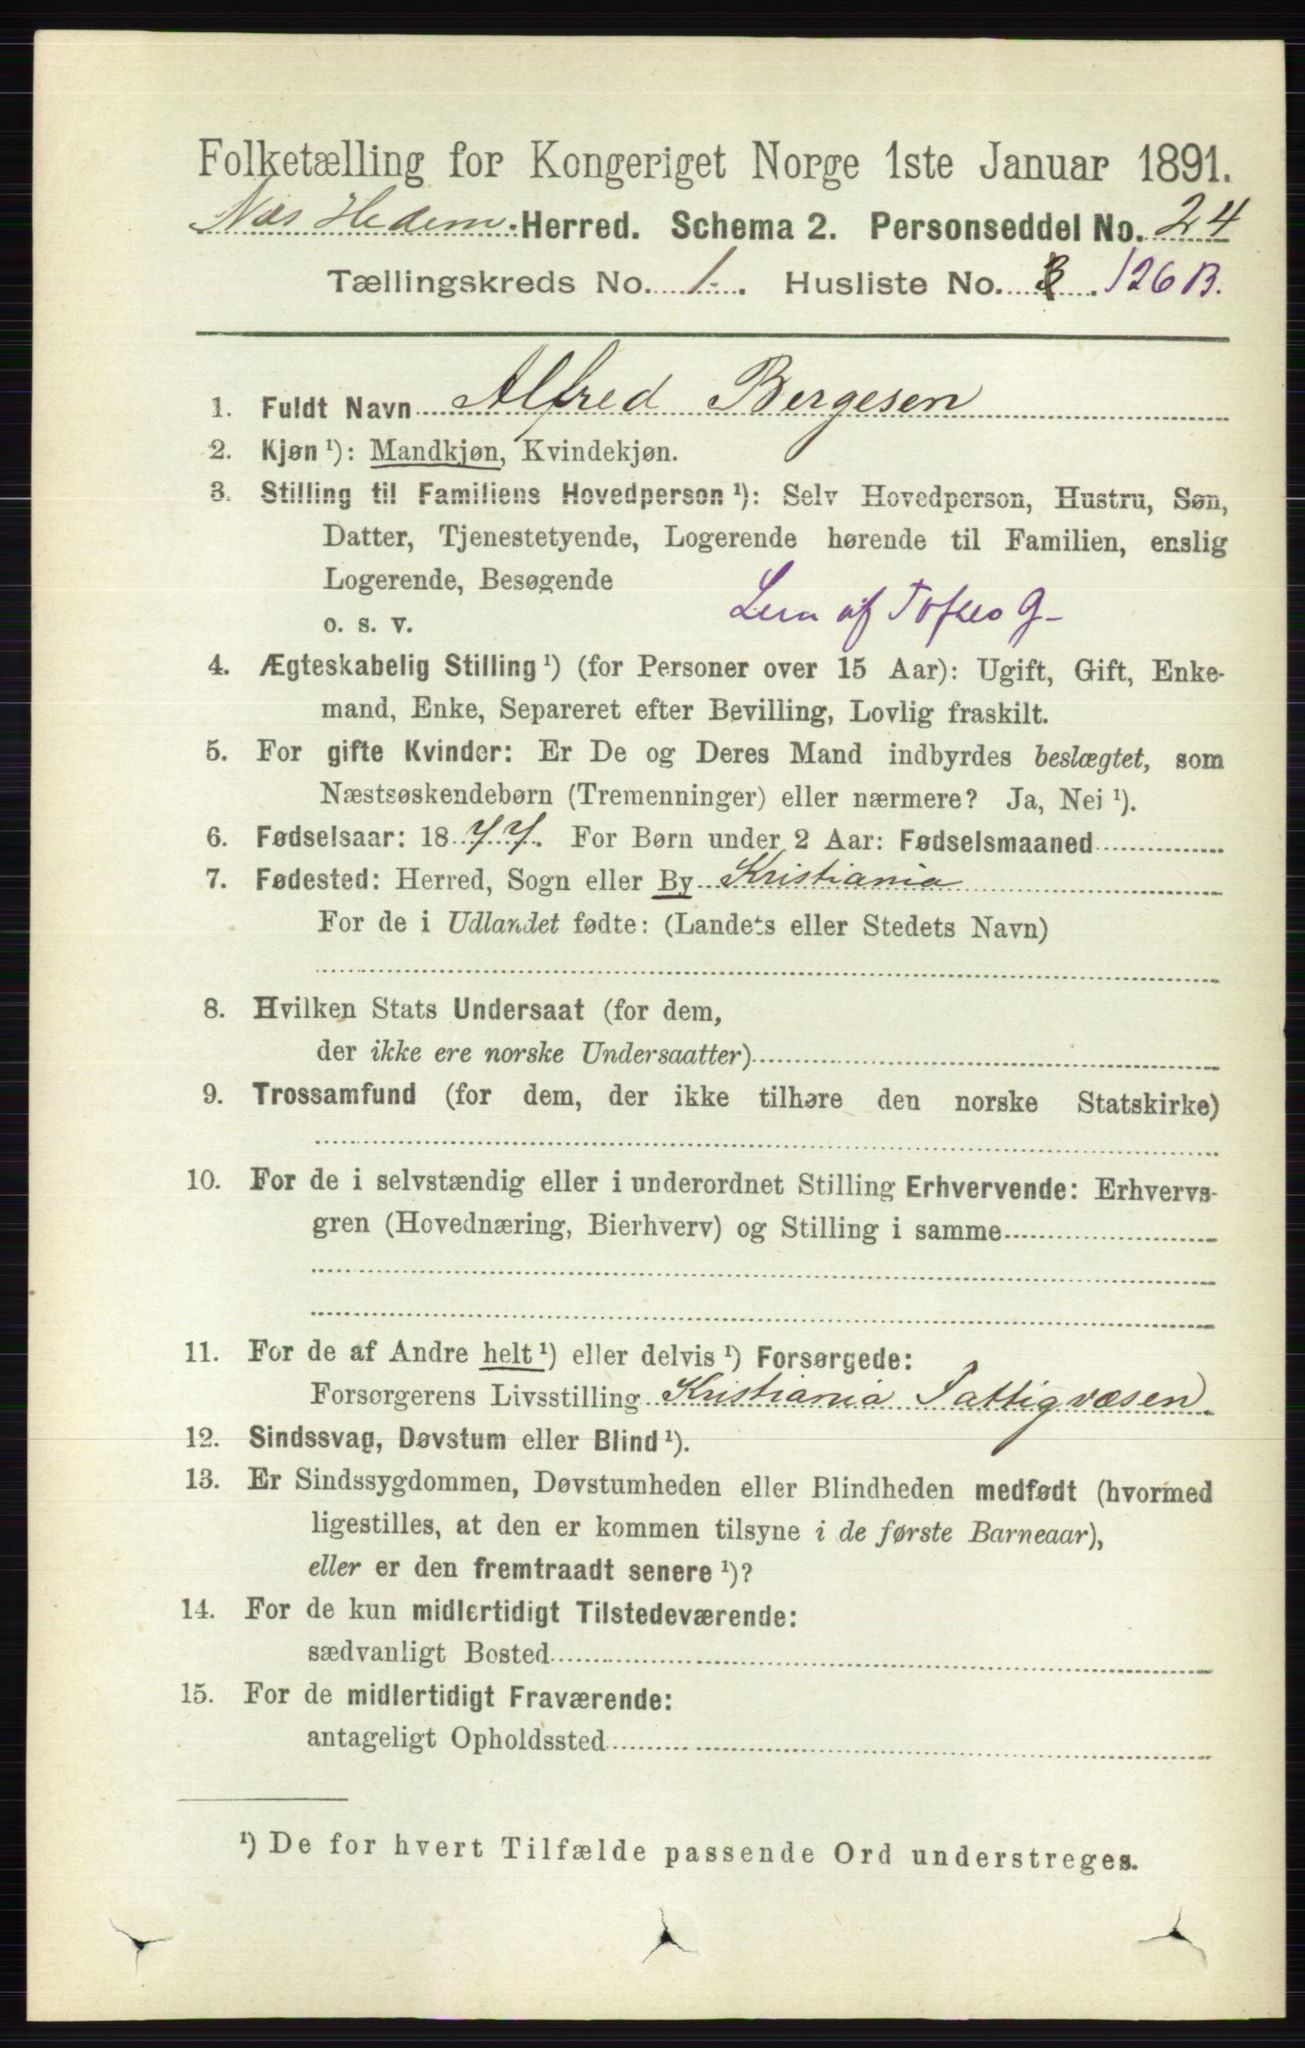 Folketælling for Kongeriget Norge 1ste Januar 1891.
Næs Hedem. Herred. Schema 2. Personseddel No. 24
Tællingskreds No. 1. Husliste No. 3. 126 B.
1. Fuldt Navn Alfred Bergesen
2. Kjøn ¹): Mandkjøn, Kvindekjøn.
3. Stilling til Familiens Hovedperson ¹): Selv Hovedperson, Hustru, Søn,
Datter, Tjenestetyende, Logerende hørende til Familien, enslig
Logerende, Besøgende
o. s. v. Lem af Toftes G-
4. Ægteskabelig Stilling ¹) (for Personer over 15 Aar): Ugift, Gift, Enke-
mand, Enke, Separeret efter Bevilling, Lovlig fraskilt.
5. For gifte Kvinder: Er De og Deres Mand indbyrdes beslægtet, som
Næstsøskendebørn (Tremenninger) eller nærmere? Ja, Nei ¹).
6. Fødselsaar: 1877. For Børn under 2 Aar: Fødselsmaaned
7. Fødested: Herred, Sogn eller By Kristiania
For de i Udlandet fødte: (Landets eller Stedets Navn)
8. Hvilken Stats Undersaat (for dem,
der ikke ere norske Undersaatter)
9. Trossamfund (for dem, der ikke tilhøre den norske Statskirke)
10. For de i selvstændig eller i underordnet Stilling Erhvervende: Erhvervs-
gren (Hovednæring, Bierhverv) og Stilling i samme
11. For de af Andre helt ¹) eller delvis ¹) Forsørgede:
Forsørgerens Livsstilling Kristiania Fattigvæsen.
12. Sindssvag, Døvstum eller Blind ¹).
13. Er Sindssygdommen, Døvstumheden eller Blindheden medfødt (hvormed
ligestilles, at den er kommen tilsyne i de første Barneaar),
eller er den fremtraadt senere ¹)?
14. For de kun midlertidigt Tilstedeværende:
sædvanligt Bosted
15. For de midlertidigt Fraværende:
antageligt Opholdssted
¹) De for hvert Tilfælde passende Ord understreges.